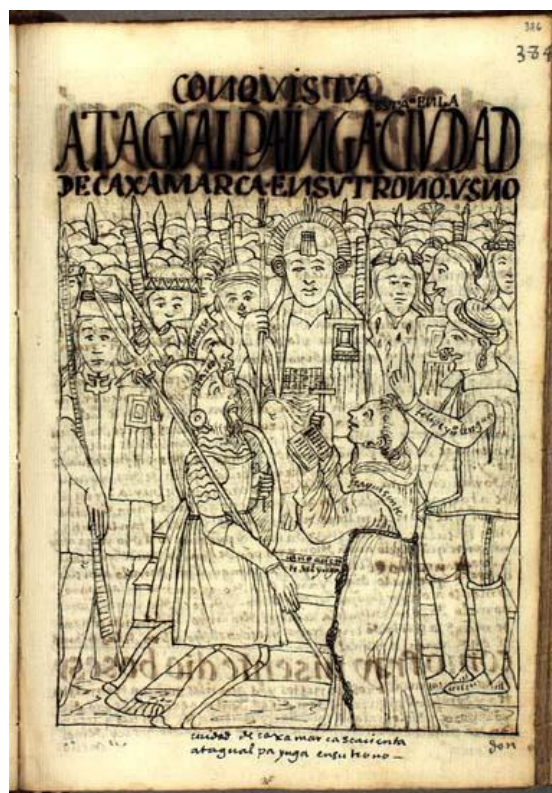 386
384
CONQVISTA
ESTA EN LA
ATAGVALPA INGA CIVDAD
DE CAXAMARCA EN SV TRONO VSNO
felipe yn lengua
fray uisente
usno aciento
del ynga
ciudad de caxa marca seacienta
atagualpa ynga en su trono —
don